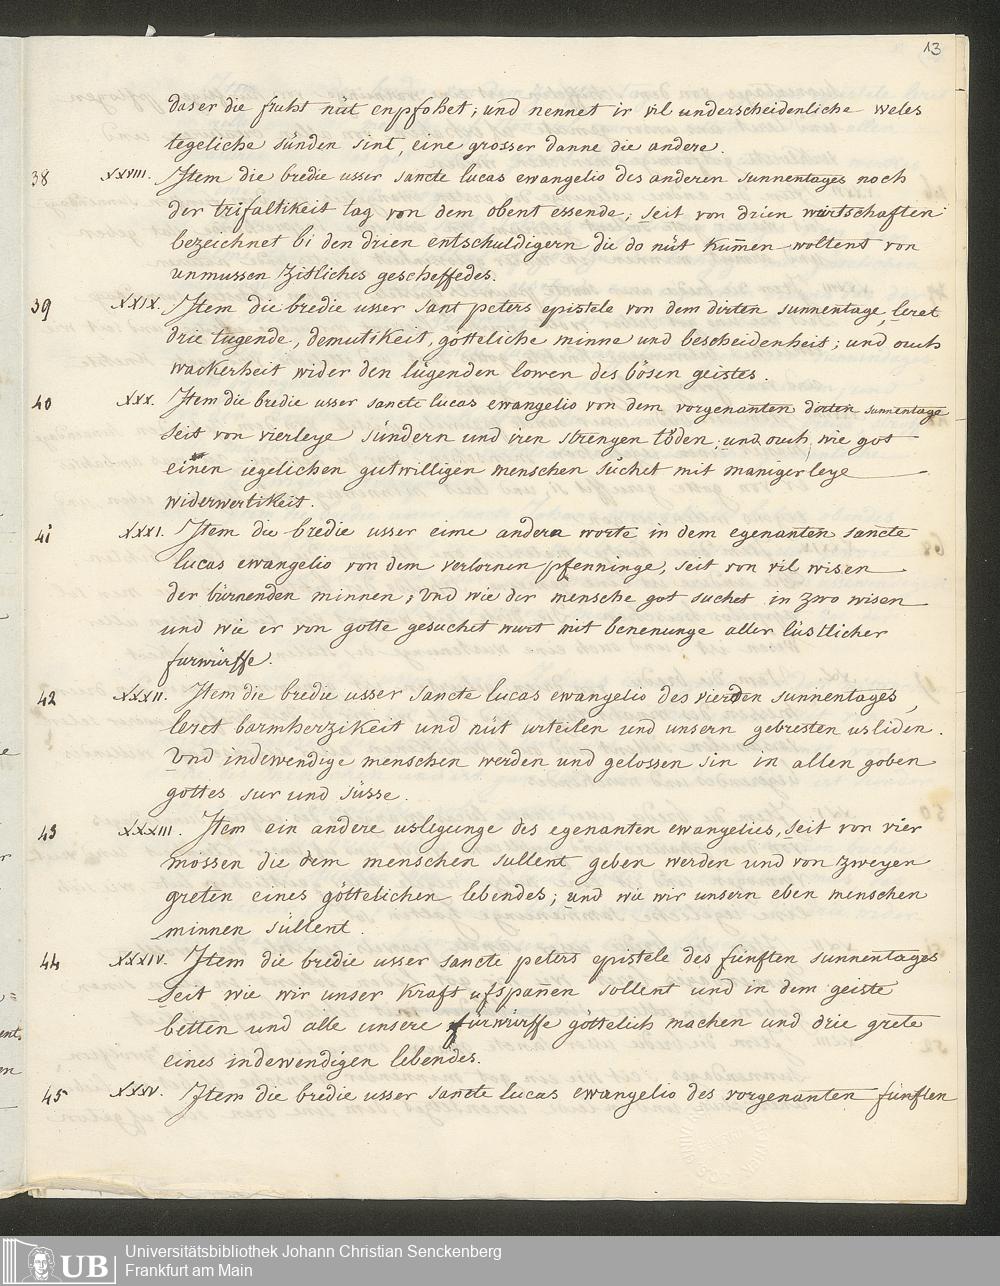 13
daser die fruht nüt enpfohet; und nennet ir vil underscheidenliche weles
tegeliche sünden sint, eine grosser danne die andere.
38 XXVIII. Item die bredie usser sancte lucas ewangelio des anderen sunnentages noch
der trifaltikeit tag von dem obent essende; seit von drien wurtschaften
bezeichnet bi den drien entschuldigern die do nüt kum̄en woltent von
unmussen zitliches gescheffedes.
39 XXIX. Item die bredie usser sant peters epistele von dem dirten sunnentage, leret
drie tugende, demutikeit, götteliche minne und bescheidenheit; und ouch
wackerheit wider den lügenden lowen des bösen geistes.
40 XXX. Item die bredie usser sancte lucas ewangelio von dem vorgenanten dirten sunnentage
seit von vierleye sündern und iren strengen töden, und ouch, wie got
einen iegelichen gutwilligen menschen suchet mit manigerleye
widerwertikeit.
41 XXXI. Item die bredie usser eime andern worte in dem egenanten sancte
lucas ewangelio von dem verlornen pfenninge, seit von vil wisen
der bürnenden minnen; Und wie der mensche got suchet in zwo wisen
und wie er von gotte gesuchet wurt mit benenunge aller lüstlicher
furwürffe.
42 XXXII. Item die bredie usser sancte lucas ewangelio des vierden sunnentages,
leret barmherzikeit und nüt urteilen und unsern gebresten usliden.
Und indewendige menschen werden und gelossen sin in allen goben
gottes sur und süsse.
43 XXXIII. Item ein andere uslegunge des egenanten ewangelies, seit von vier
mossen die dem menschen sullent geben werden und von zweyen
greten eines göttelichen lebendes; und wie wir unsern eben menschen
minnen süllent.
44 XXXIV. Item die bredie usser sancte peters epistele des fünften sunnentages
seit wie wir unser kraft ufspan̄en sollent und in dem geiste
betten und alle unsere fürwürffe göttelich machen und drie grete
eines indewendigen lebendes.
45 XXXV. Item die bredie usser sancte lucas ewangelio des vorgenanten fünften
UB
Universitätsbibliothek Johann Christian Senckenberg
Frankfurt am Main